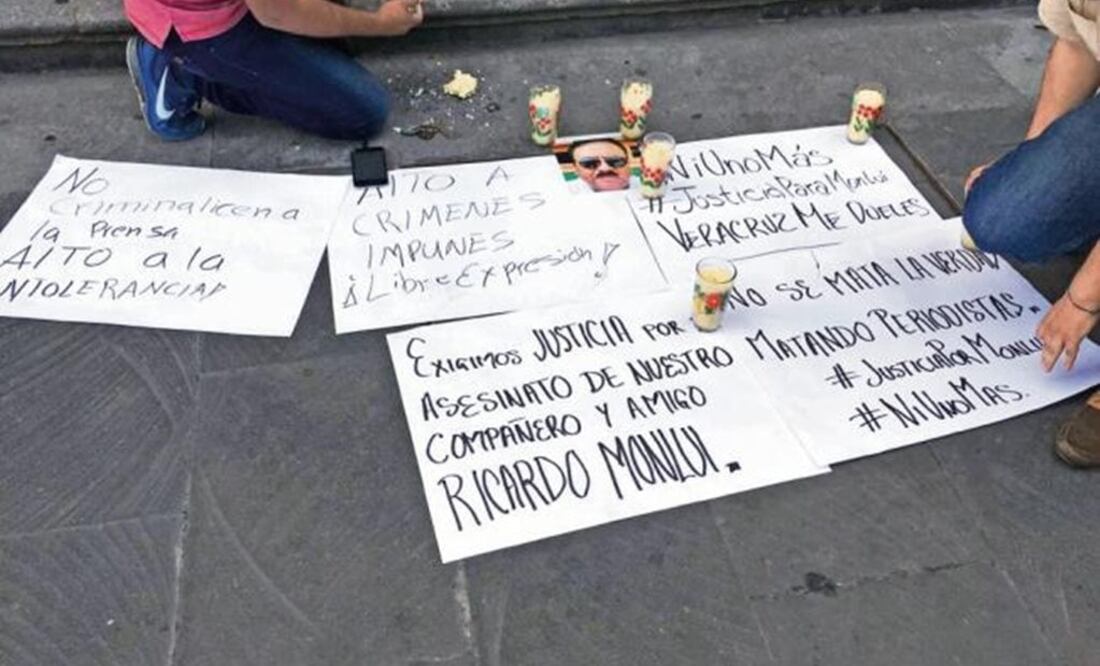 No
Criminalicen a
la Prensa
ALTO a la
NTOLERANCIA!
ALTO A
CRIMENES
IMPUNES
¡Libre Expresión!
#NiUnoMás
#JusticiaParaMonlui
VERACRUZ ME DUELES
EXIGIMOS JUSTICIA POR
ASESINATO DE NUESTRO
COMPAÑERO Y AMIGO
RICARDO MONLUI.
NO SE MATA LA VERDAD
MATANDO PERIODISTAS.
#JUSTICIAPORMONLUI
#NiUNOMAS.